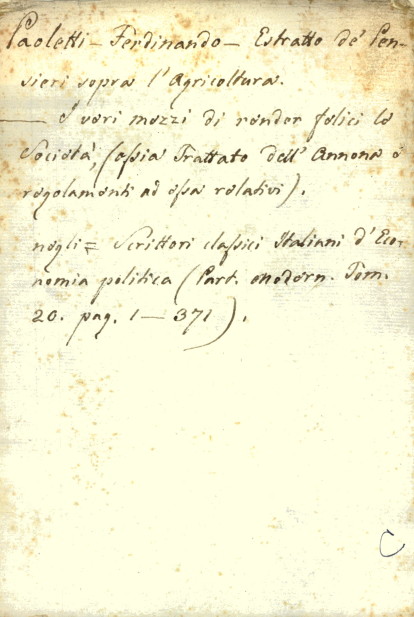 Paoletti - Ferdinando - Estratto de' Pen-
sieri sopra l'Agricoltura.
— I veri mezzi di render felici le
Società, (ossia Trattato dell'Annona e
regolamenti ad essa relativi).
negli = Scrittori classici Italiani d'Eco-
nomia politica (Part. modern. Tom.
20. pag. 1 — 371).
C